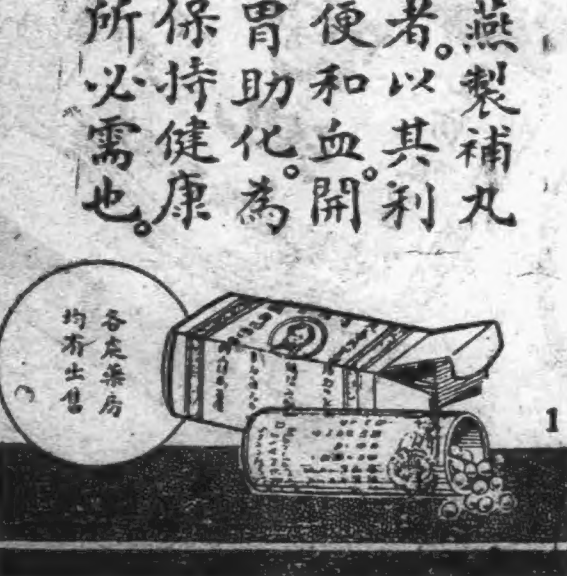 燕製補丸
者。以其利
便和血。開
胃助化。為
保持健康
所必需也。
各大藥房
均有出售
1